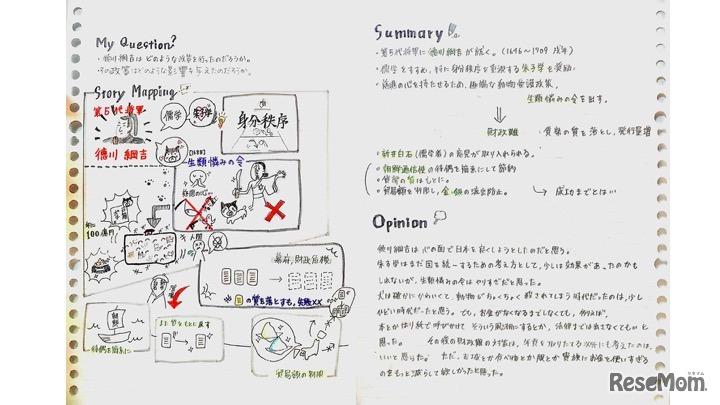 My Question?
・徳川綱吉はどのような政策を行ったのだろうか。
・その政策はどのような影響を与えたのだろうか。
Story Mapping
第5代将軍
徳川 綱吉
儒学
朱子学
身分秩序
生類憐みの令
慈悲の心…
人間
幕府、財政危機
の質を落とすも、失敗××
朝鮮
待遇を簡素に
貿易額の制限
Summary
・第5代将軍に徳川綱吉が就く。(1646～1709
・儒学をすすめ、特に身分秩序を重視する朱子学を奨励
・慈悲の心を持たせるため、極端な動物愛護政策、
生類憐みの令を出す。
⇓
財政難
貨幣の質を落とし、発行量増
・新井白石(儒学者)の意見が取り入れられる。
・朝鮮通信使の待遇を簡素にして節約
・貨幣の質をもとに。
・貿易額を制限し、金・銀の流出防止。 → 成功までとはい
Opinion
徳川綱吉は心の面で日本を良くしようとしたのだと思う。
朱子学はまだ国を統一するための考え方として、少しは効果があったのかも
しれないが、生類憐みの令はやりすぎだと思った。
犬は確かにかわいくて、動物がむちゃくちゃ殺されてしまう時代だったのは、少し
ひどい時代だったと思う。でも、お金がなくなるまでしなくても、例えば、
本とかはり紙で呼びかけて そういう風潮にするとか、法律までは出さなくてもいいと
思った。
いいと思った。 ただ、
のをもっと減らして欲しかったと思った。
ReseMom.
リセマム